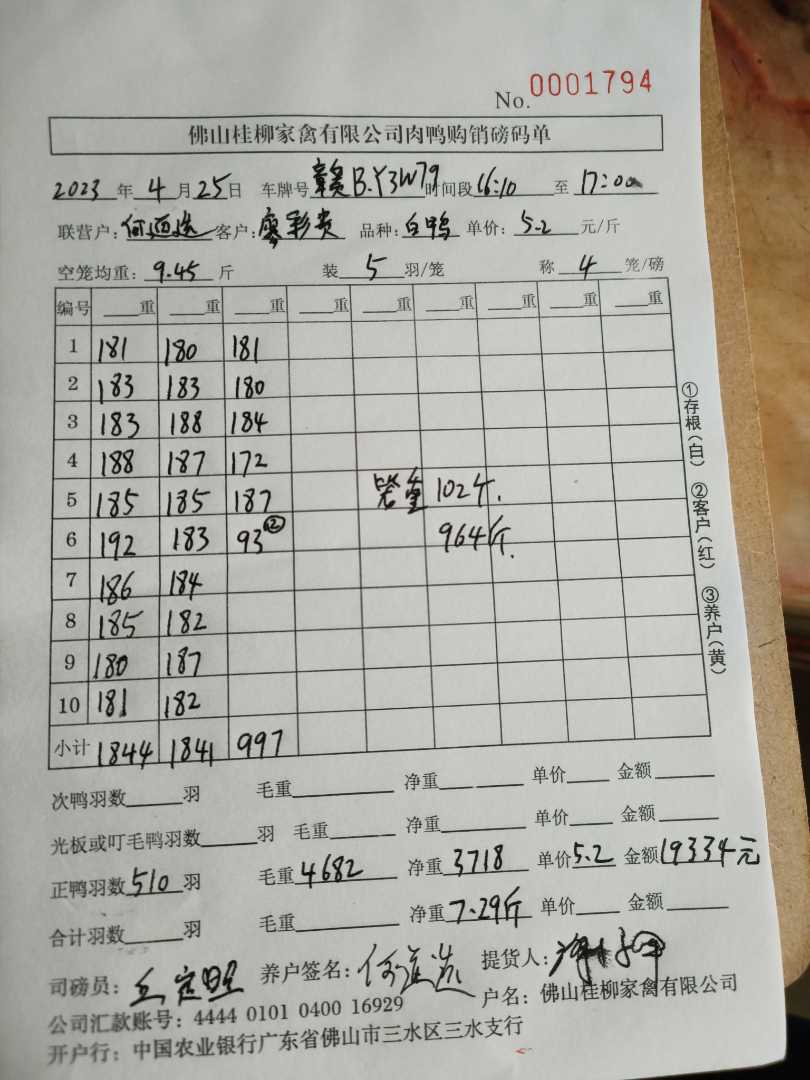 No. 0001794
佛山桂柳家禽有限公司肉鸭购销磅码单
2023 年 4 月 25 日 车牌号 赣B.Y3W79 时间段 16:10 至 17:00
联营户: 何 客户: 廖彩贵 品种: 白鸭 单价: 5.2 元/斤
空笼均重: 9.45 斤 装 5 羽/笼 称 4 笼/磅
编号 重 重 重 重 重 重 重 重 重
1 181 180 181
2 183 183 180
3 183 188 184
4 188 187 172
5 185 185 187 笼重 102个.
6 192 183 93② 964斤.
7 186 184
8 185 182
9 180 187
10 181 182
小计 1844 1841 997
次鸭羽数 羽 毛重 净重 单价 金额
光板或叮毛鸭羽数 羽 毛重 净重 单价 金额
正鸭羽数 510 羽 毛重 4682 净重 3718 单价 5.2 金额 19334元
合计羽数 羽 毛重 净重 7.29斤 单价 金额
司磅员: 养户签名: 何 提货人:
公司汇款账号: 4444 0101 0400 16929 户名: 佛山桂柳家禽有限公司
开户行: 中国农业银行广东省佛山市三水区三水支行
①存根(白) ②客户(红) ③养户(黄)